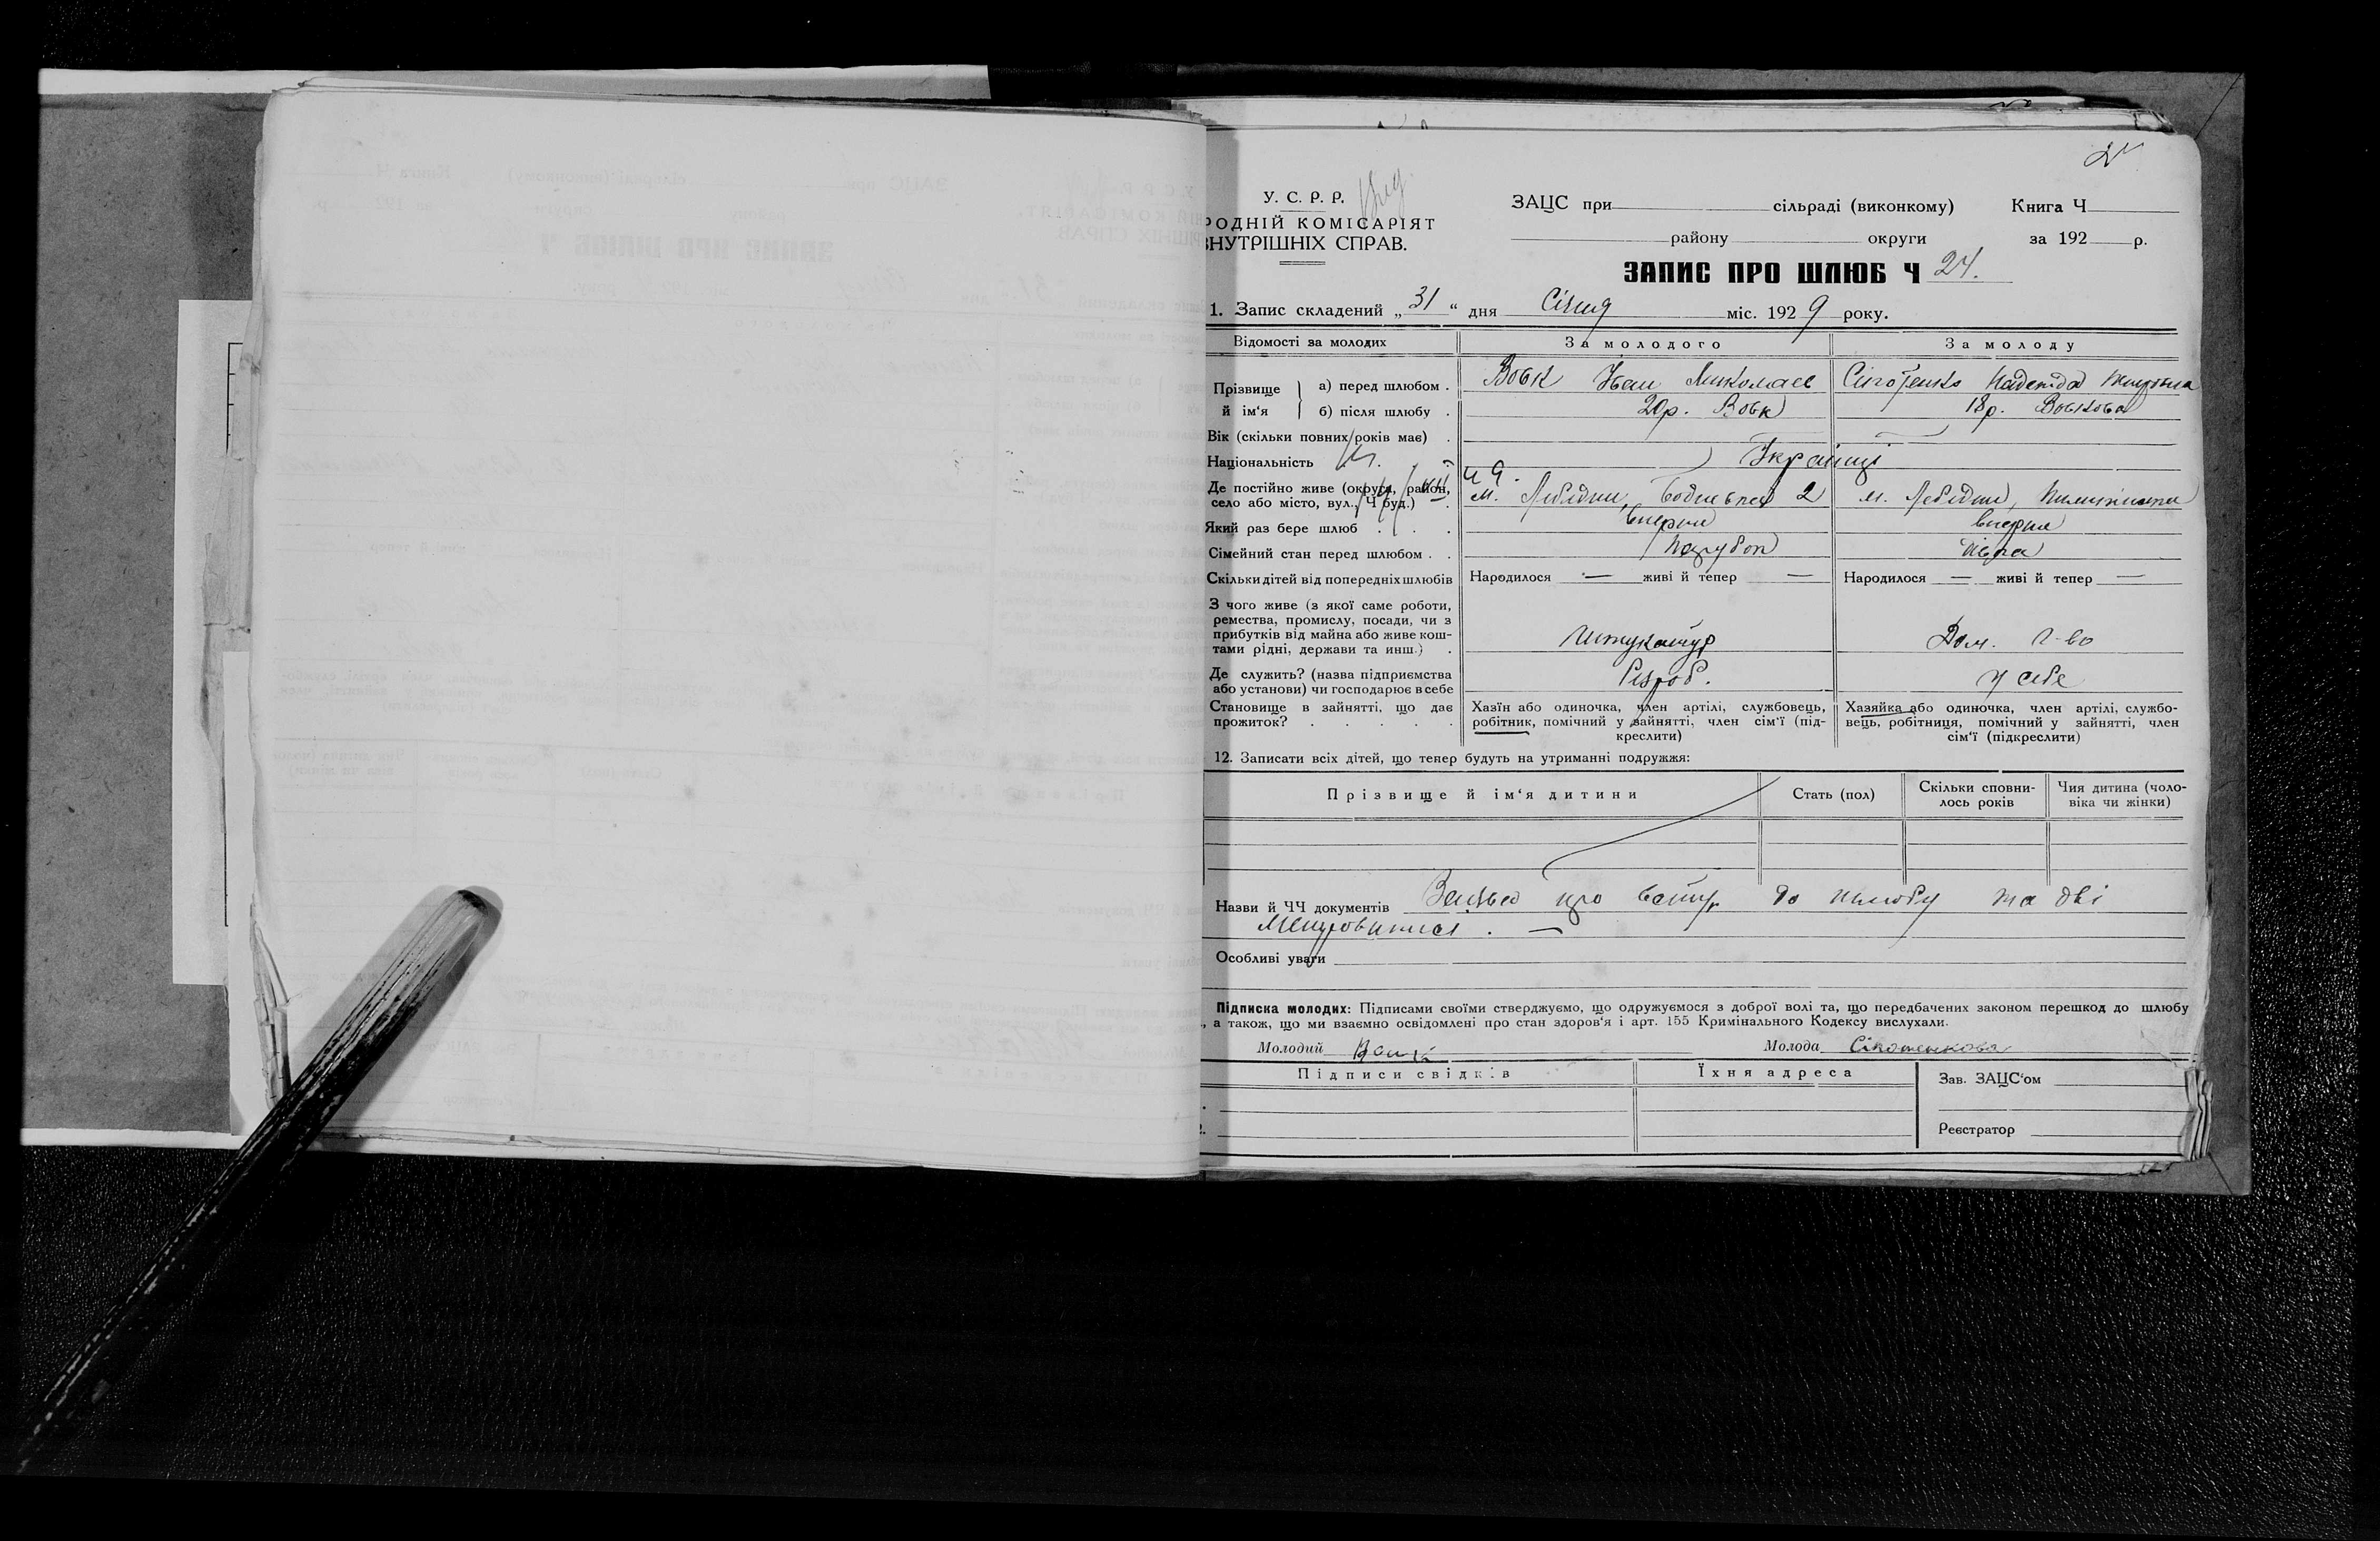 У. С. Р. Р.
РОДНІЙ КОМІСАРІЯТ
ВНУТРІШНІХ СПРАВ.
ЗАЦС при сільраді (виконкому) Книга Ч
району округи за 192 р.
ЗАПИС ПРО ШЛЮБ Ч 24.
1. Запис складений „ 31 “ дня Січня міс. 192 9 року.
Відомості за молодих За молодого За молоду
Прізвище й ім‘я а) перед шлюбом . Вовк Іван Миколаев Сіпотенко Надежда
б) після шлюбу . 20р. Вовк 18р. Вовкова
Вік (скільки повних років має) .
Національність Українці
Де постійно живе (округа, район, село або місто, вул., Ч буд.) . м. Лебідин, 2 м. Лебідин,
Який раз бере шлюб . . . вперше вперше
Сімейний стан перед шлюбом . . парубок дівка
Скільки дітей від попередніх шлюбів Народилося — живі й тепер — Народилося — живі й тепер —
З чого живе (з якої саме роботи,
ремества, промислу, посади, чи з
прибутків від майна або живе кош-
тами рідні, держави та инш.) . Штукатур Дом. г-во
Де служить? (назва підприємства
або установи) чи господарює в себе Різроб. у себе
Становище в зайнятті, що дає
прожиток? . . . . .
Хазїн або одиночка, член артілі, службовець,
робітник, помічний у зайнятті, член сім‘ї (під-
креслити)
Хазяйка або одиночка, член артілі, службо-
вець, робітниця, помічний у зайнятті, член
сім‘ї (підкреслити)
12. Записати всіх дітей, що тепер будуть на утриманні подружжя:
Прізвище й ім‘я дитини Стать (пол) Скільки сповни-
лось років Чия дитина (чоло-
віка чи жінки)
Назви й ЧЧ документів про вступ до шлюбу та дві
Особливі уваги
Підписка молодих: Підписами своїми стверджуємо, що одружуємося з доброї волі та, що передбачених законом перешкод до шлюбу
, а також, що ми взаємно освідомлені про стан здоров‘я і арт. 155 Кримінального Кодексу вислухали.
Молодий Вовк Молода Сіпотенкова
Підписи свідків Їхня адреса Зав. ЗАЦС‘ом
Реєстратор